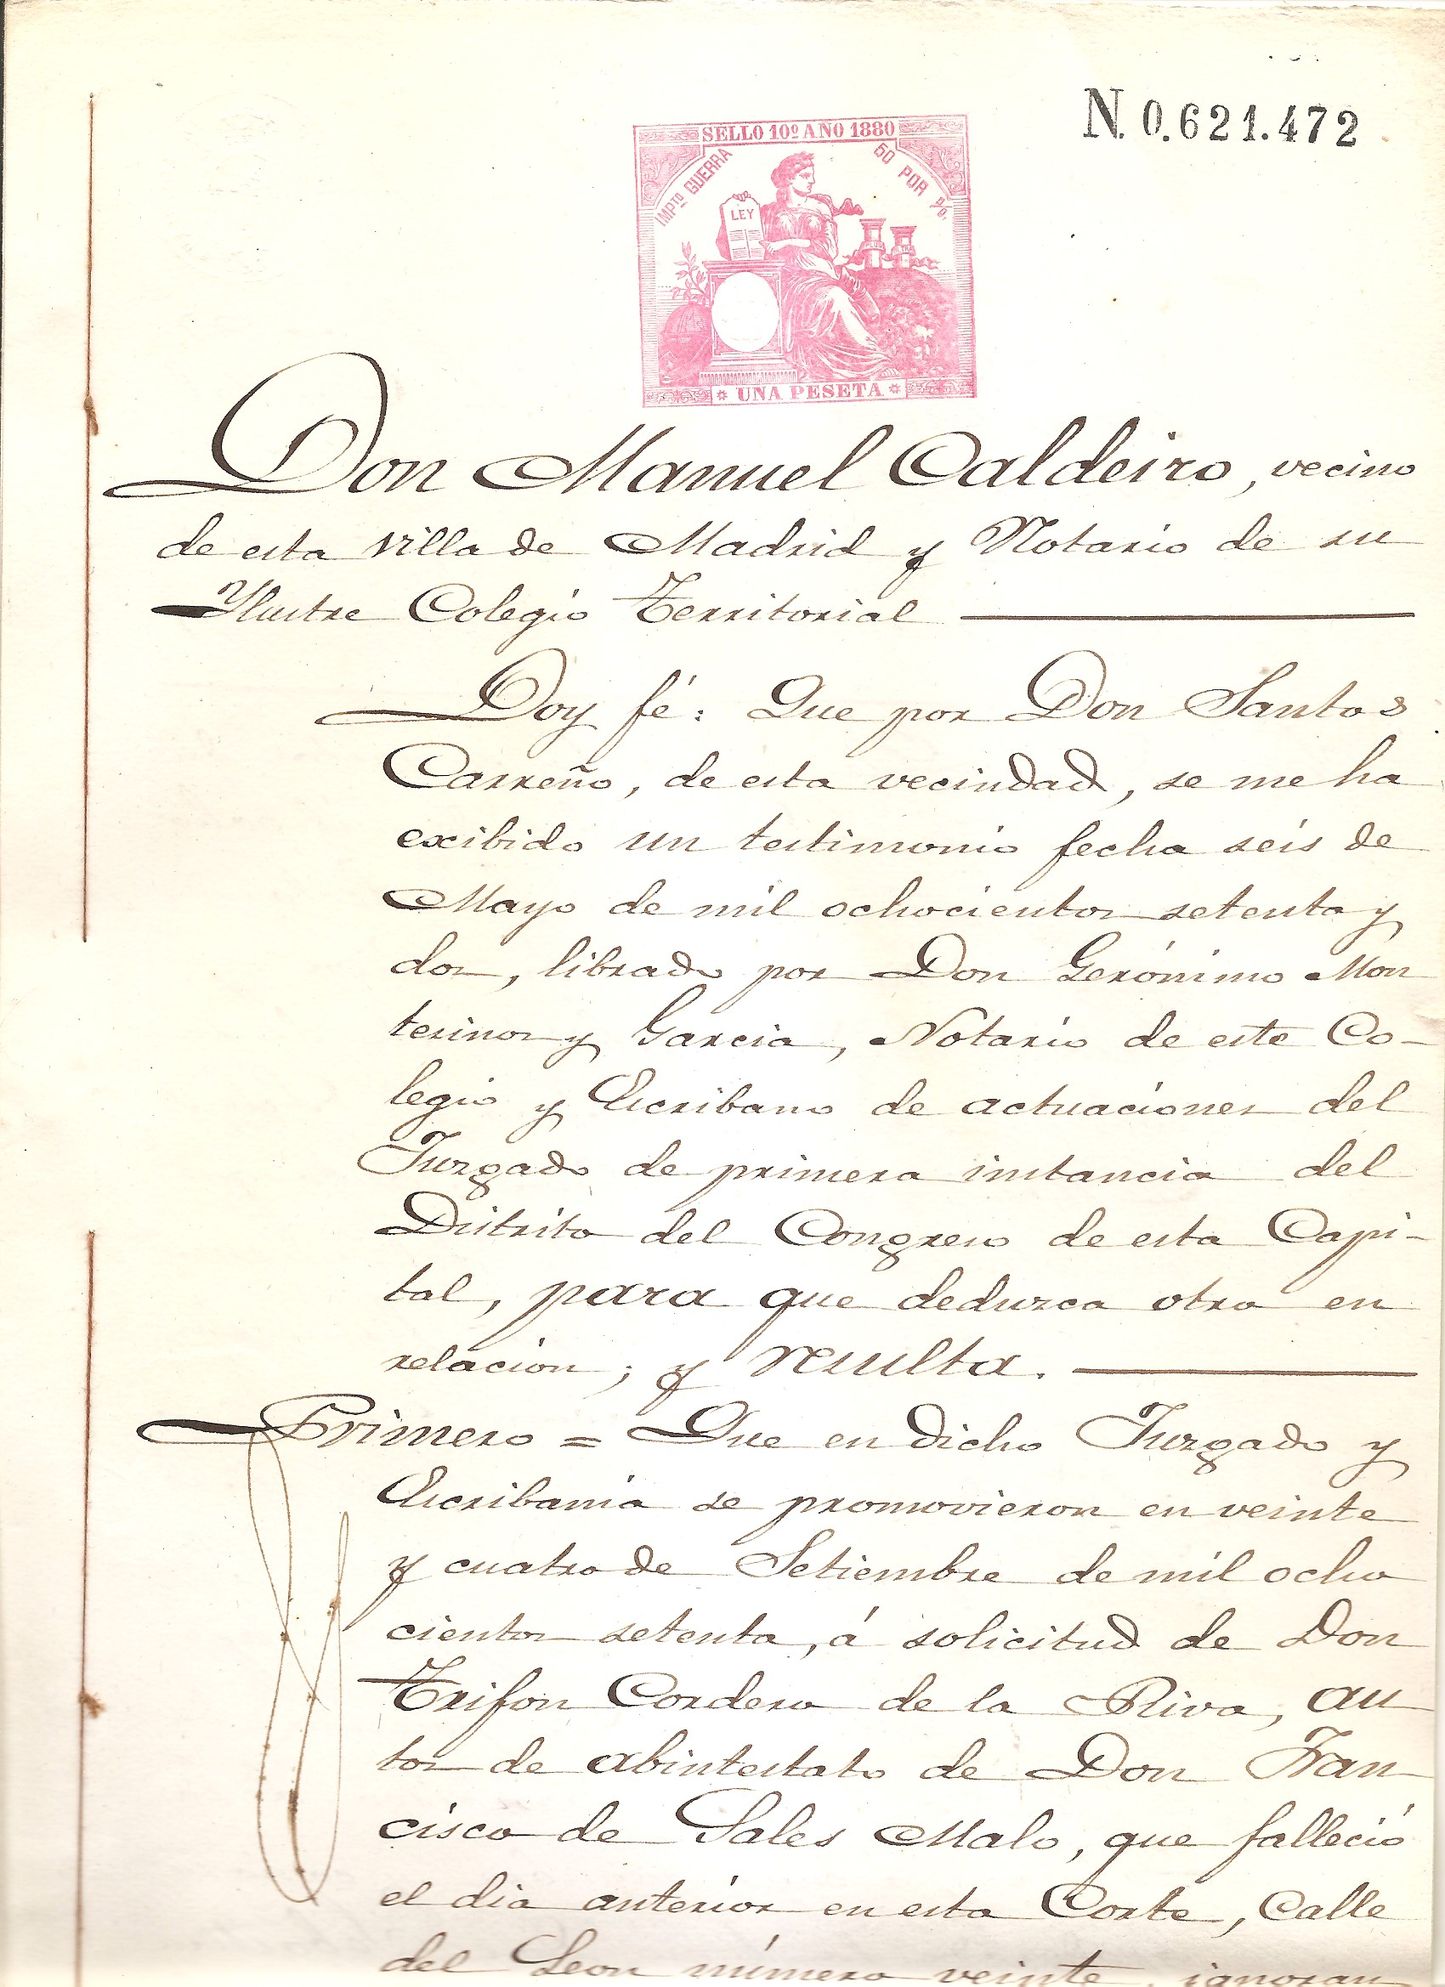 N. 0.621.472
SELLO 10º AÑO 1880
IMPTO GUERRA 50 POR %
LEY
UNA PESETA
Don Manuel Caldeiro, vecino
de esta villa de Madrid y Notario de su
Ylustre Colegio Territorial
Doy fé: Que por Don Santos
Carreño, de esta vecindad, se me ha
exibido un testimonio fecha seis de
Mayo de mil ochocientos setenta y
dos, librado por Don Gerónimo Mon
tesinos y Garcia, Notario de este Co-
legio y Escribano de actuaciones del
Juzgado de primera instancia del
Distrito del Congreso de esta Capi-
tal, para que deduzca otro en
relacion; y resulta.
Primero = Que en dicho Juzgado y
Escribanía se promovieron en veinte
y cuatro de Setiembre de mil ocho
cientos setenta, á solicitud de Don
Trifon Cordero de la Riva, au
tos de abintestato de Don Fran
cisco de Sales Malo, que falleció
el dia anterior en esta Corte, Calle
del Leon número veinte, ignoran